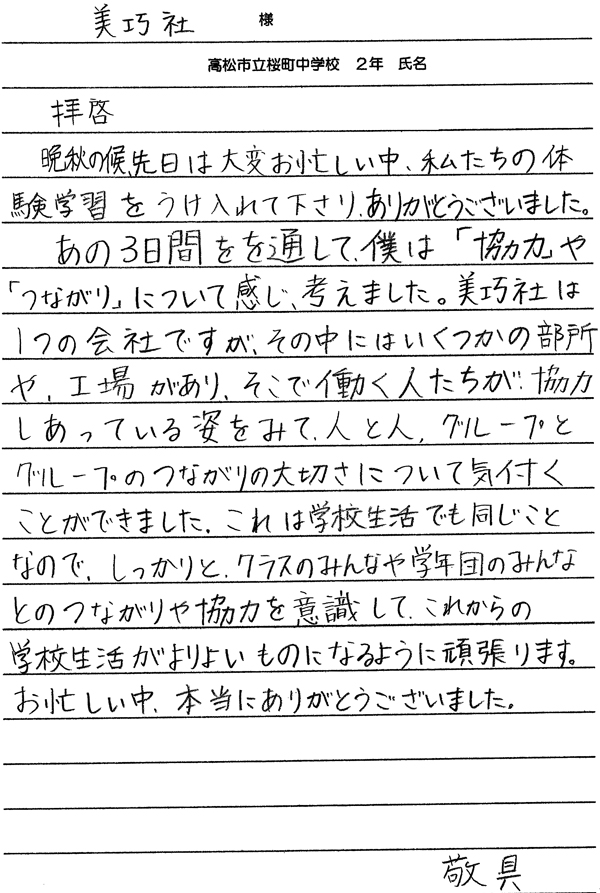 美巧社 様
高松市立桜町中学校 2年 氏名
拝啓
晩秋の候、先日は大変お忙しい中、私たちの体
験学習をうけ入れて下さり、ありがとうございました。
あの3日間をを通して、僕は「協力」や
「つながり」について感じ、考えました。美巧社は
1つの会社ですが、その中にはいくつかの部所
や、工場があり、そこで働く人たちが、協力
しあっている姿をみて、人と人、グループと
グループのつながりの大切さについて気付く
ことができました。これは学校生活でも同じこと
なので、しっかりと、クラスのみんなや学年団のみんな
とのつながりや協力を意識して、これからの
学校生活がよりよいものになるように頑張ります。
お忙しい中、本当にありがとうございました。
敬具